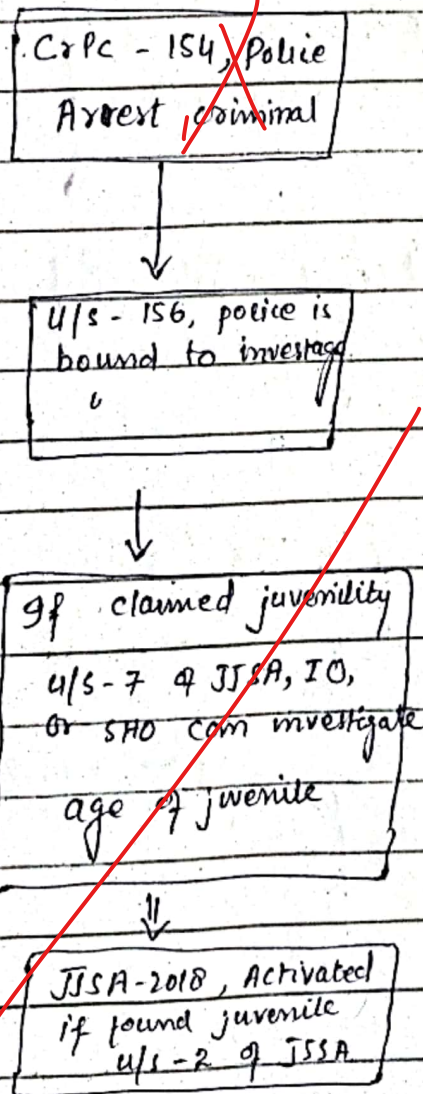 CrPC - 154, Police
Arrest criminal
u/s - 156, police is
bound to investage
If claimed juvenility
u/s - 7 of JJSA, IO,
or SHO can investigate
age of juvenile
JJSA-2018, Activated
if found juvenile
u/s - 2 of JSSA